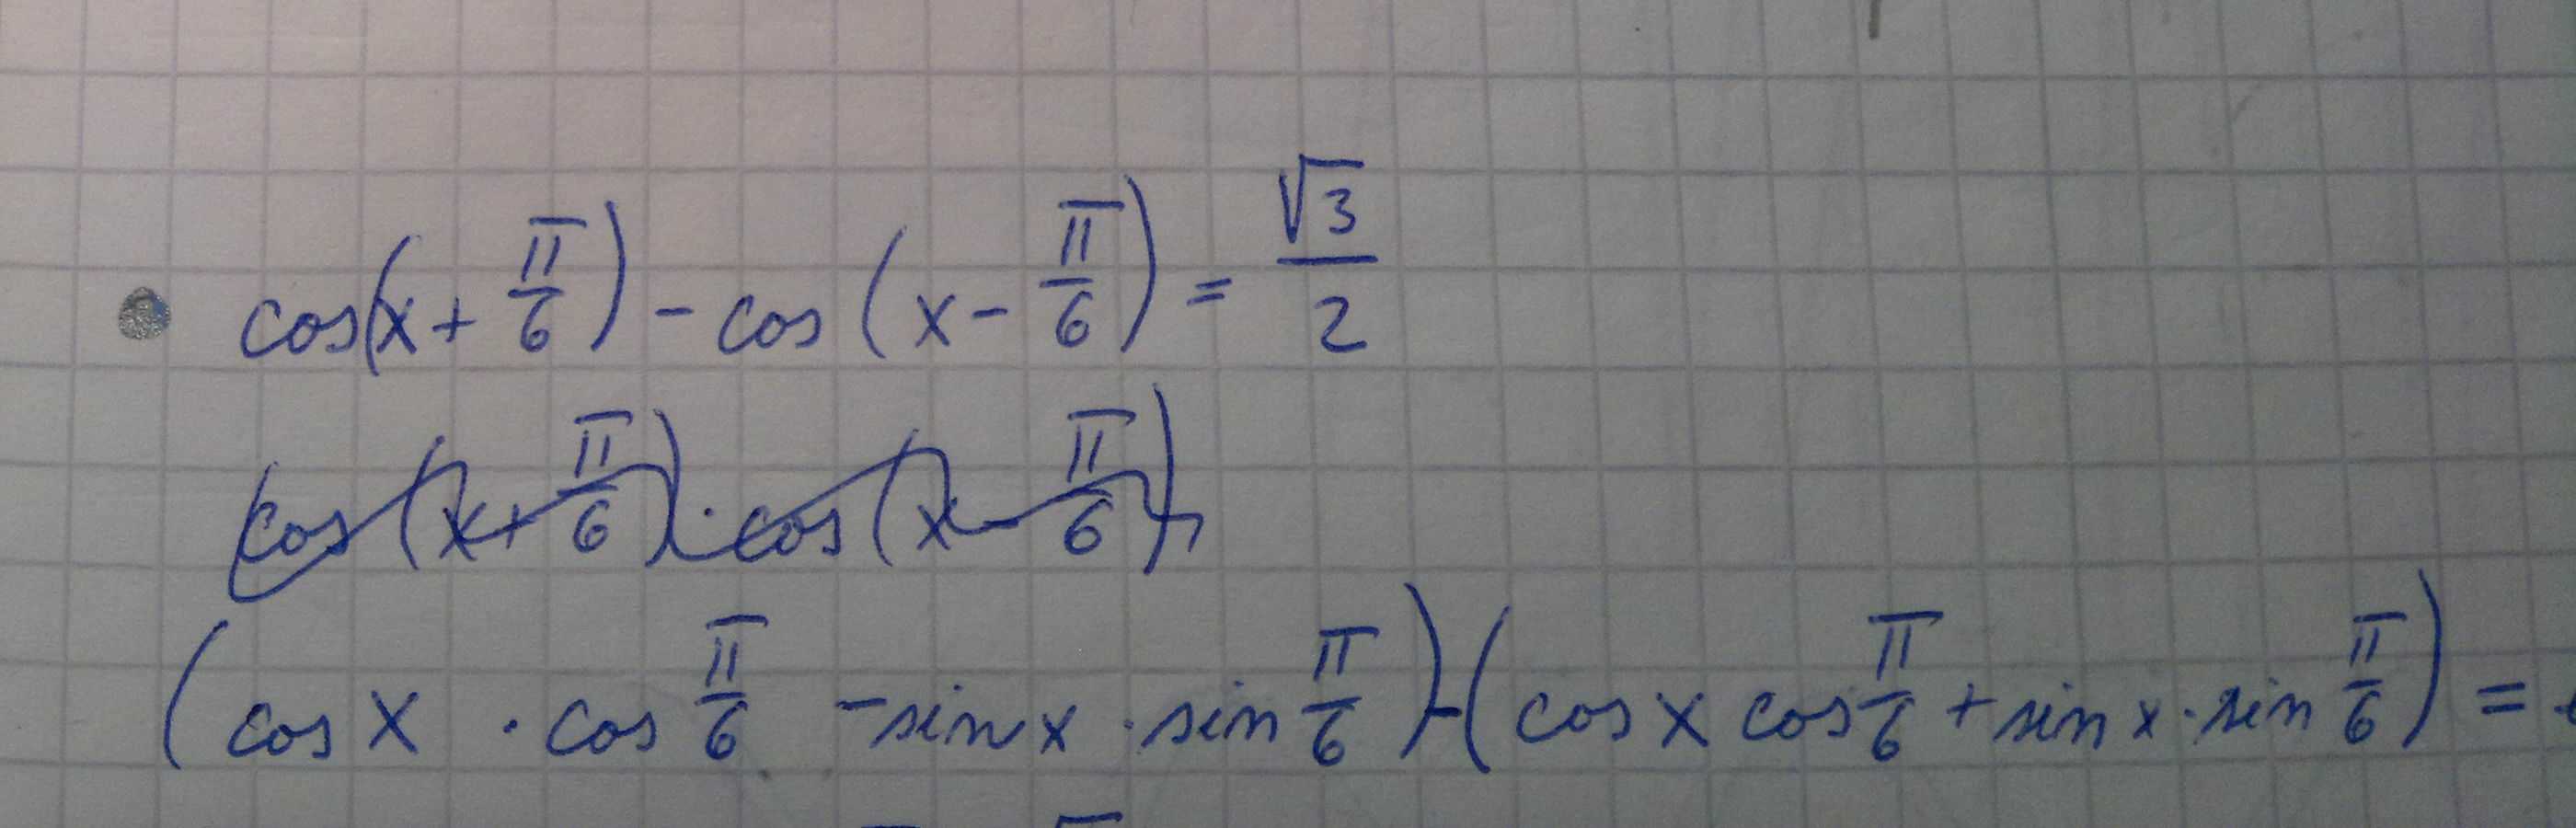 cos(x + π/6) - cos(x - π/6) = √3/2
cos(x + π/6) · cos(x - π/6)
(cos x · cos π/6 - sin x · sin π/6) - (cos x cos π/6 + sin x · sin π/6) =